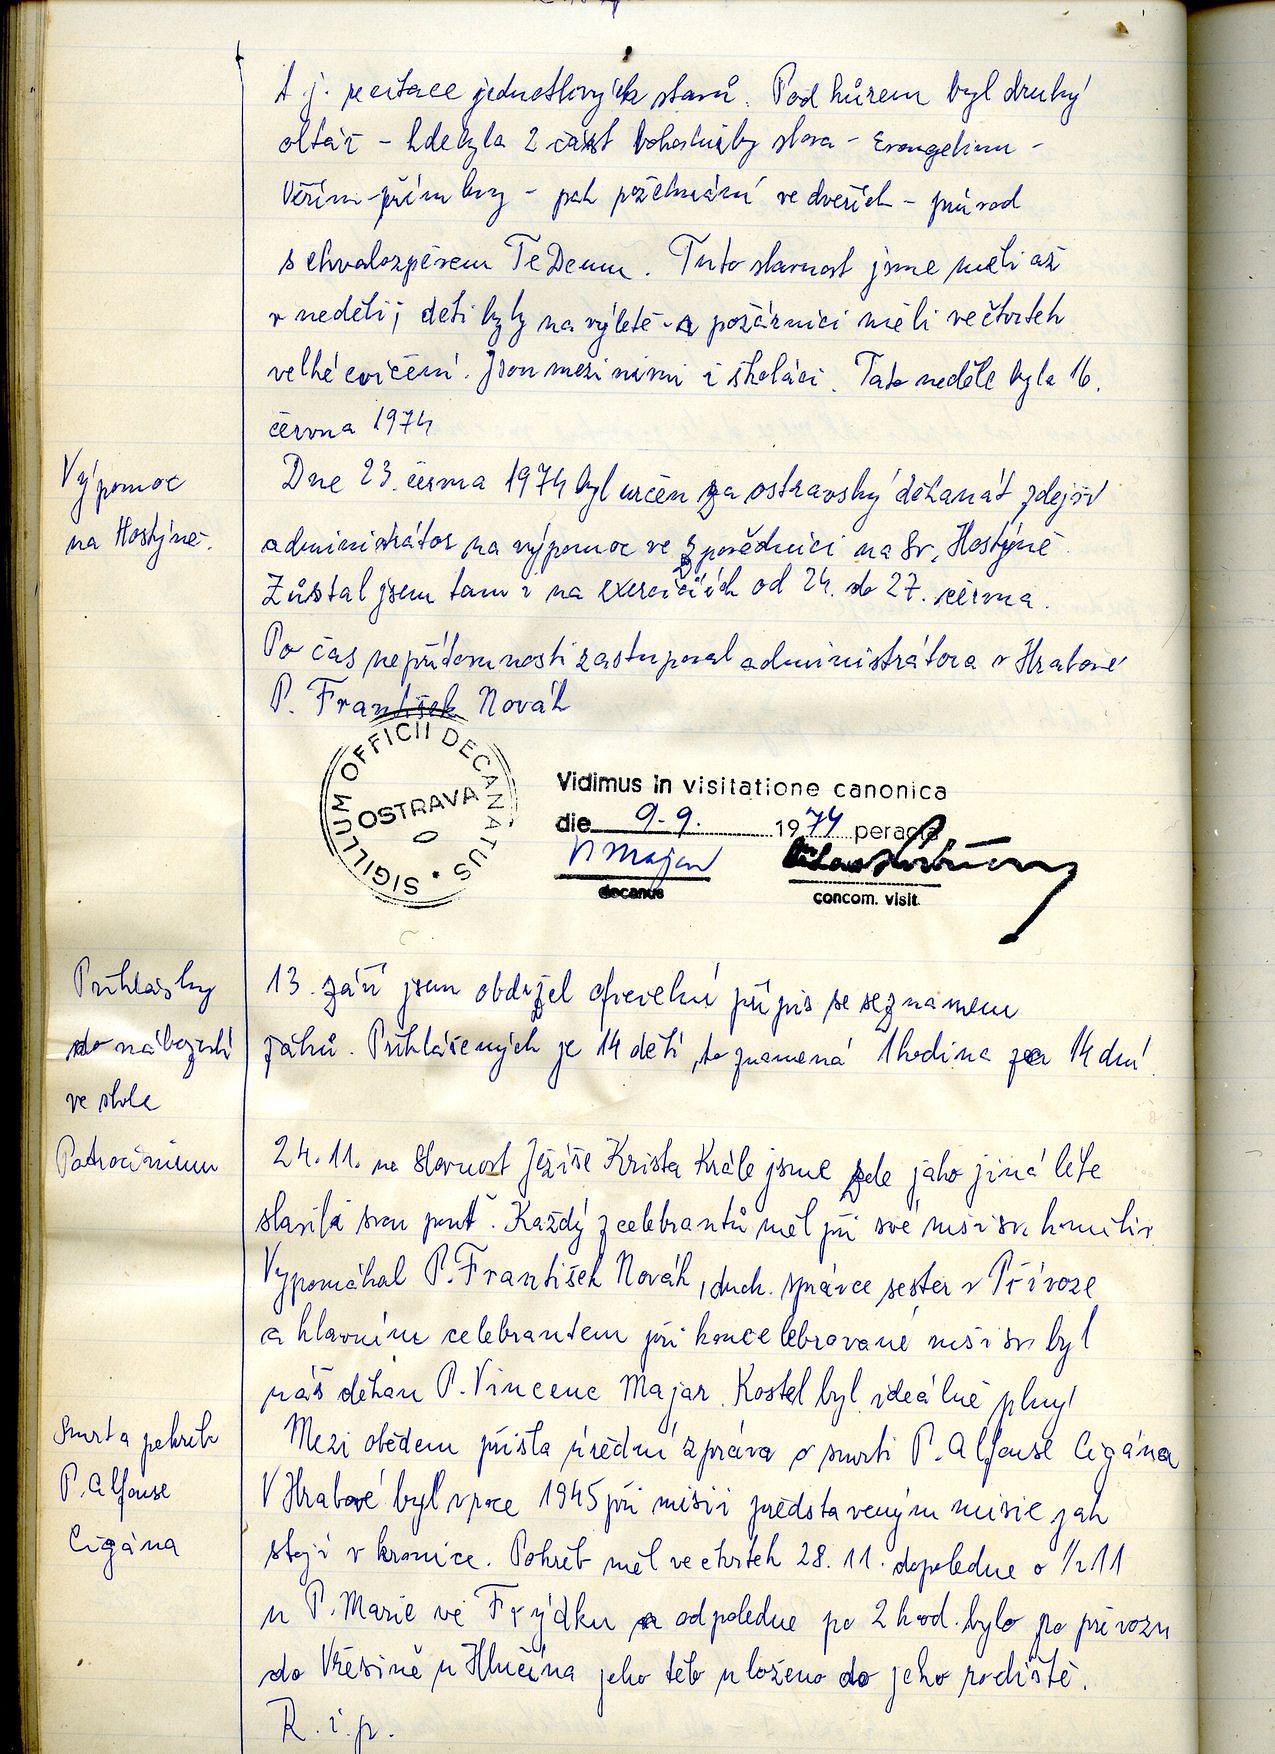 t. j. recitace jednotlivých stavů. Pod kůrem byl druhý
oltář - kde byla 2 část bohoslužby slova - Evangelium -
Věřím - přímluvy - pak požehnání ve dveřích - průvod
s chvalozpěvem Te Deum. Tuto slavnost jsme měli až
v neděli; děti byly na výletě - a požárníci měli ve čtvrtek
velké cvičení. Jsou mezi nimi i školáci. Tato neděle byla 16.
června 1974
Výpomoc
na Hostýně.
Dne 23. června 1974 byl určen za ostravský děkanát zdejší
administrátor na výpomoc ve zpovědnici na Sv. Hostýně.
Zůstal jsem tam i na exerciciích od 24. do 27. června.
Po čas nepřítomnosti zastupoval administrátora v Hrabové
P. František Novák
SIGILLUM OFFICII DECANATUS
OSTRAVA
Vidimus in visitatione canonica
die 9.9. 1974 peracta
V Majar
decanus
concom. visit.
Přihlášky
do náboženství
ve škole
13. září jsem obdržel opevelní přípis se seznamem
žáků. Přihlášených je 14 dětí, to znamená 1 hodina za 14 dní.
Patrocinium
24. 11. na Slavnost Ježíše Krista Krále jsme zde jako jiná léta
slavili svou pouť. Každý z celebrantů měl při své mši sv. homilii.
Vypomáhal P. František Novák, duch. správce sester v Přívoze
a hlavním celebrantem při koncelebrované mši sv. byl
náš děkan P. Vincenc Majar. Kostel byl ideálně plný
Smrt a pohřeb
P. Alfonse
Cigána
Mezi obědem přišla úřední zpráva o smrti P. Alfonse Cigána
V Hrabové byl v roce 1945 při misii představeným misie jak
stojí v kronice. Pohřeb měl ve čtvrtek 28. 11. dopoledne o 1/2 11
u P. Marie ve Frýdku a odpoledne po 2 hod. bylo po převozu
do Vřesině u Hlučína jeho tělo uloženo do jeho rodiště.
R. i. p.